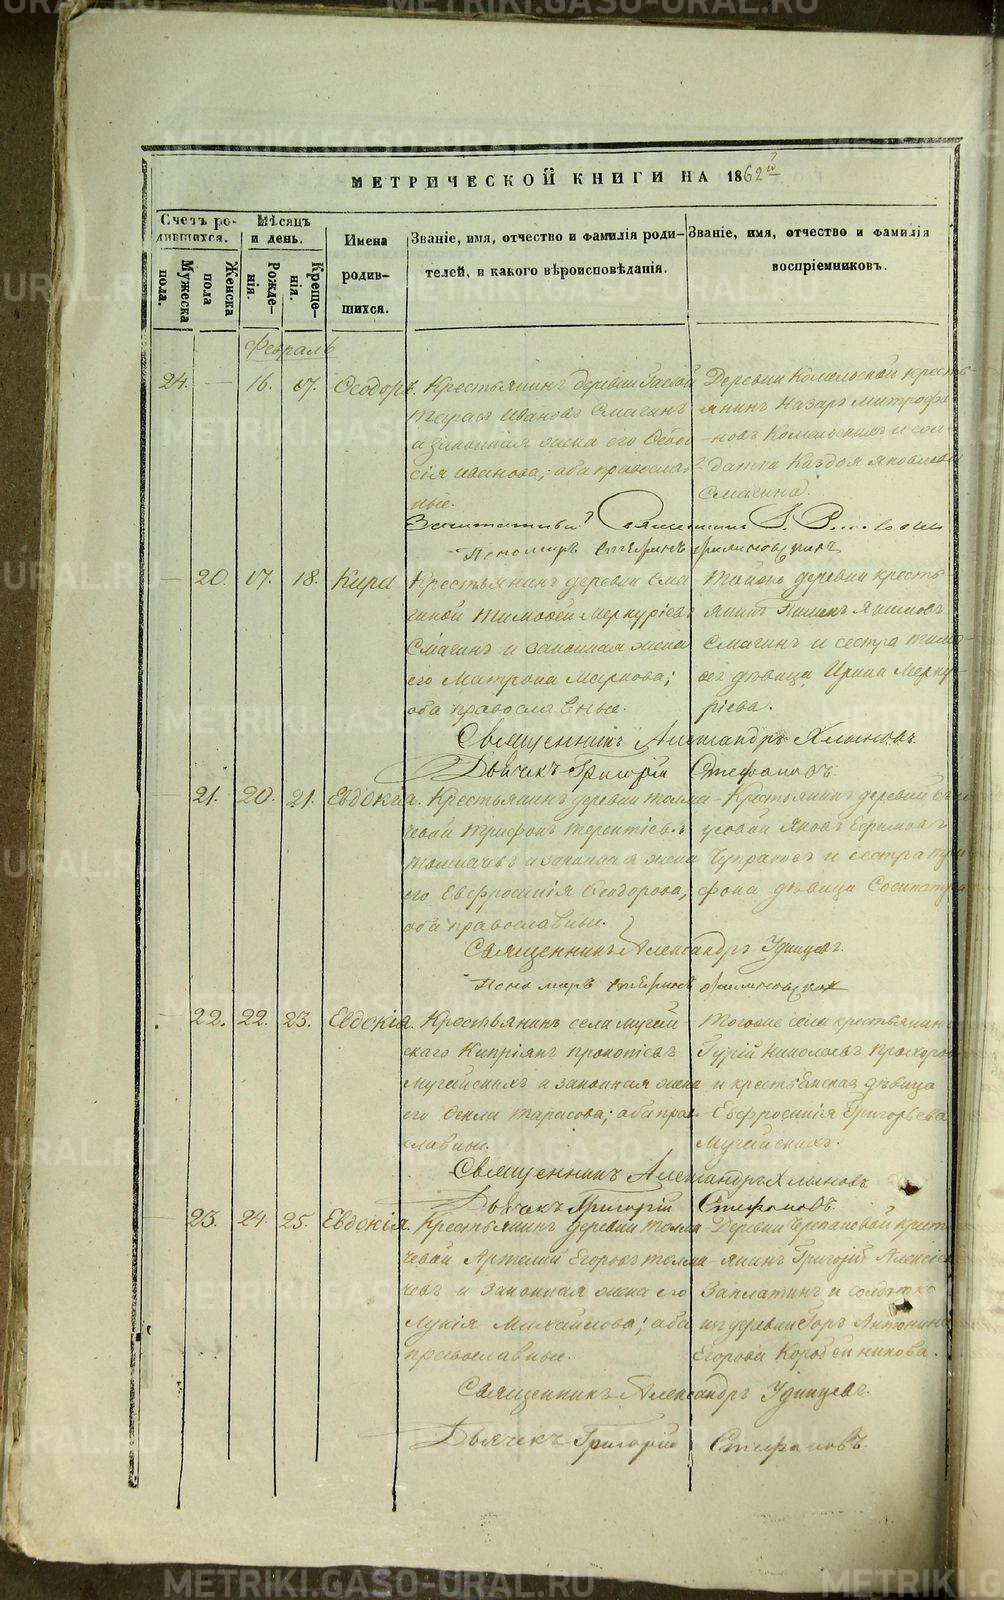 МЕТРИЧЕСКОЙ КНИГИ НА 1862й
Счетъ ро-
дившихся.
Мѣсяцъ
и день.
Мужеска
пола.
Женска
пола
Рожде-
нія.
Креще-
нія.
Имена
родив-
шихся.
Званіе, имя, отчество и фамилія роди-
телей, и какого вѣроисповѣданія.
Званіе, имя, отчество и фамилія
воспріемниковъ.
Февраль
24. — 16. 17. Ѳеодоръ. Крестьянинъ деревни
Тарасъ Ивановъ Смагинъ
и законная жена его
Иванова; оба православ-
ные.
Деревни Комельской кресть-
янинъ Назаръ Митрофа-
новъ и сол-
датка Яковлева
Смагина.
Пономарь
— 20. 17. 18. Кира Крестьянинъ деревни Сма-
гиной Тимоѳей Меркуріевъ
Смагинъ и законная жена
его Матрона Маркова;
оба православные.
деревни кресть-
янинъ
Смагинъ и сестра Тимо-
ѳея дѣвица Ирина Мерку-
ріева.
Священникъ Александръ Хлыновъ.
Дьячекъ Григорій Стефановъ.
— 21. 20. 21. Евдокія. Крестьянинъ деревни Толма-
чевой Трифонъ Терентіевъ
Толмачевъ и законная жена
его Евфросинія Ѳеодорова,
оба православные.
Крестьянинъ деревни
Яковъ Ефимовъ
Чупраковъ и сестра Три-
фона дѣвица Сосипатра
Священникъ Александръ Удинцевъ.
Пономарь
— 22. 22. 23. Евдокія. Крестьянинъ села Мугай-
скаго Кипріянъ Прокопіевъ
Мугайскихъ и законная жена
его Ѳекла Тарасова; оба право-
славные.
Тогоже села крестьянинъ
Гурій Николаевъ
и крестьянская дѣвица
Евфросинія Григорьева
Мугайскихъ.
Священникъ Александръ Хлыновъ.
Дьячекъ Григорій Стефановъ.
— 23. 24. 25. Евдокія. Крестьянинъ деревни Толма-
чевой Артемій Егоровъ Толма-
чевъ и законная жена его
Лукія Михайлова; оба
православные.
Деревни Черепановой кресть-
янинъ Григорій Алексіевъ
Заплатинъ и солдатка
деревни Горъ Антонина
Егорова Коробейникова.
Священникъ Александръ Удинцевъ.
Дьячекъ Григорій Стефановъ.
METRIKI.GASO-URAL.RU